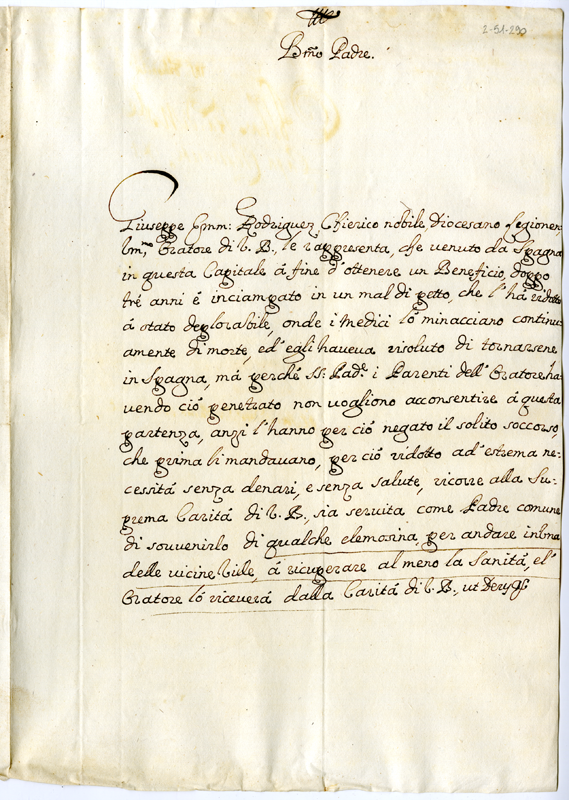 2-51-290
Bmo Padre.
Giuseppe Emm: Rodriguez Chierico nobile, Diocesano Legionen:
Oratore di V. B., le rappresenta, che venuto da Spagna
in questa Capitale á fine d'ottenere un Beneficio, doppo
tré anni é inciampato in un mal di petto, che l'há ridotto
á stato deplorabile, onde i Medici ló minacciano continu
amente di morte, ed'egli haveva risoluto di tornarsene
in Spagna, má perché SS: Pad.e i Parenti dell'Oratore ha
vendo ció penetrato non vogliono acconsentire á questa
partenza, anzi l'hanno per ció negato il solito soccorso,
che prima li mandavano, per ció ridotto ad'estrema ne-
cessitá senza denari, e senza salute, ricorre alla Su:
prema Caritá di V. B., sia servita come Padre comune
di souvenirlo di qualche elemosina, per andare in una
delle vicine Ville, á ricuperare al meno la Sanitá, el'
Oratore ló riceverá dalla Caritá di V. B., ut Deus &c